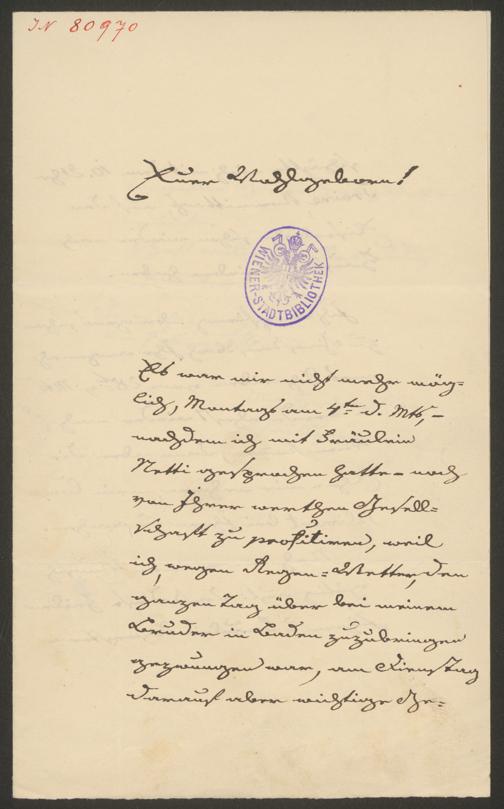 IN 80970
Euer Wohlgeboren!
WIENER-STADTBIBLIOTHEK
Es war mir nicht mehr mög=
lich, Montags am 4ten d. Mts, –
nachdem ich mit Fräulein
Netti gesprochen hatte – noch
von Ihrer werthen Gesell=
schaft zu profitiren, weil
ich, wegen Regen=Wetter, den
ganzen Tag über bei meinem
Bruder in Baden zuzubringen
gezwungen war, am Dienstag
darauf aber wichtige Ge=